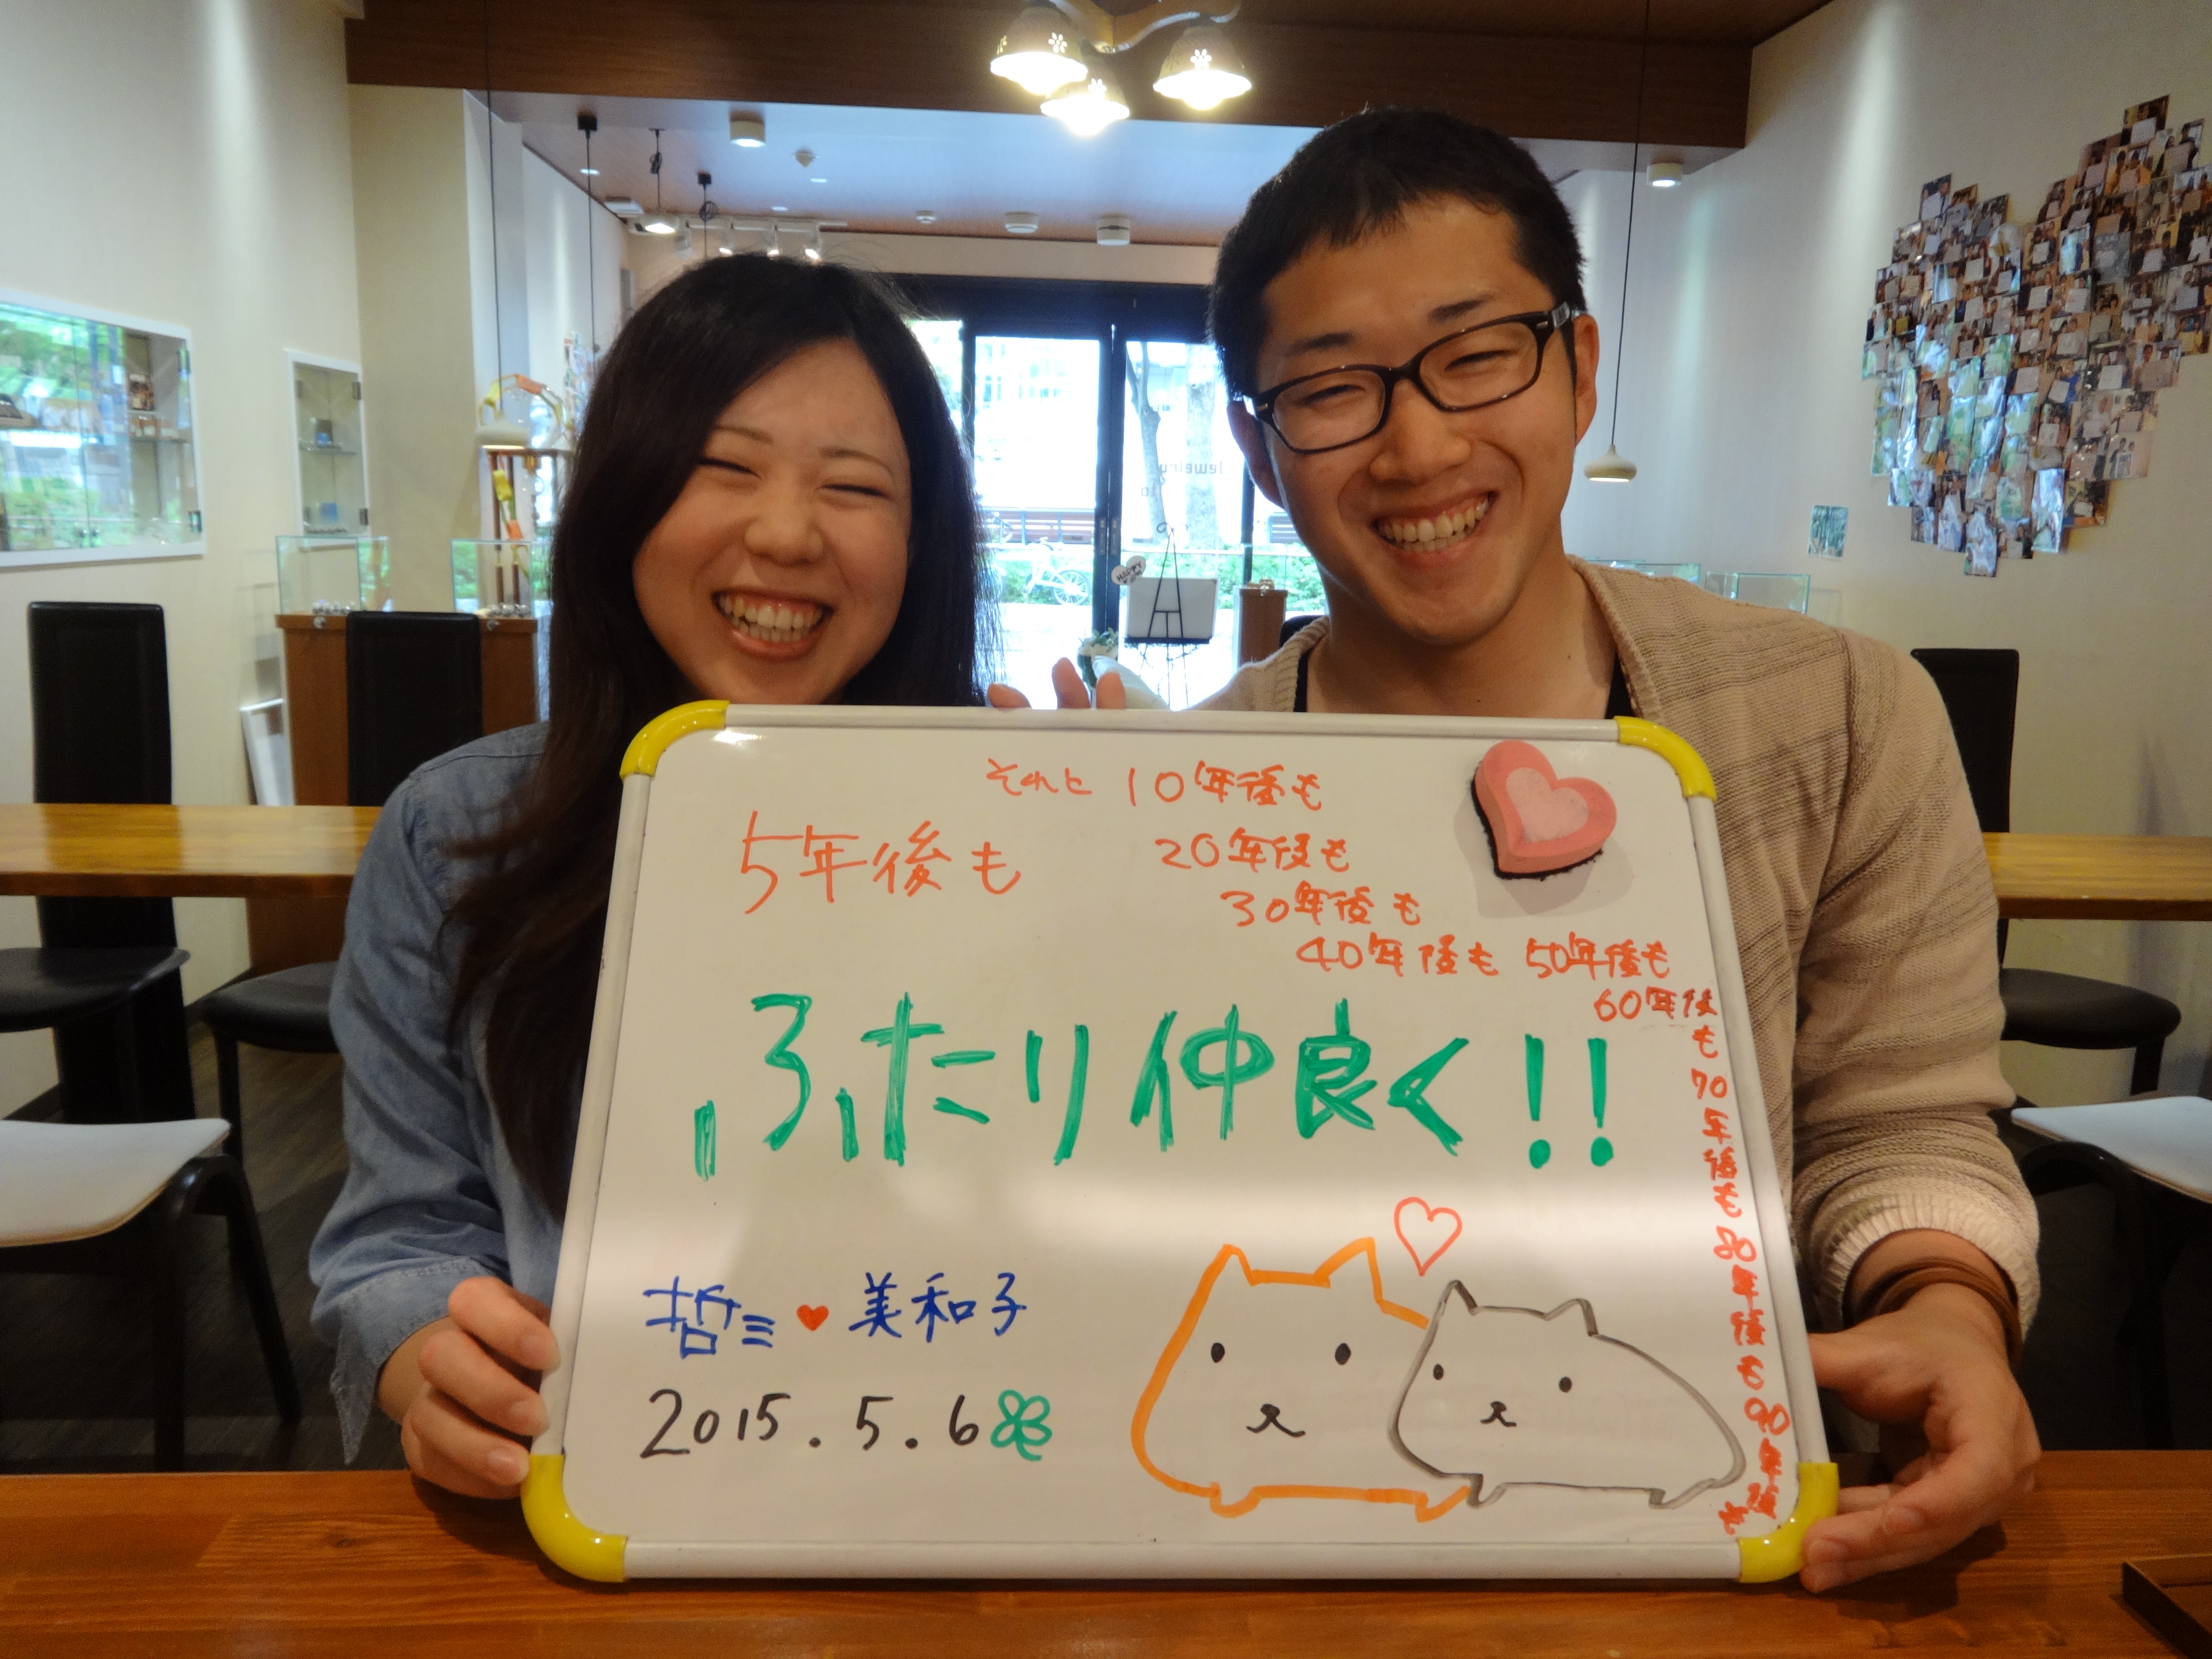 それと 10年後も
5年後も
20年後も
30年後も
40年後も 50年後も
60年後
も
70
年
後
も
80
年
後
も
90
年
後
も
ふたり仲良く!!
哲三♥美和子
2015.5.6
HAPPY
Jewelry